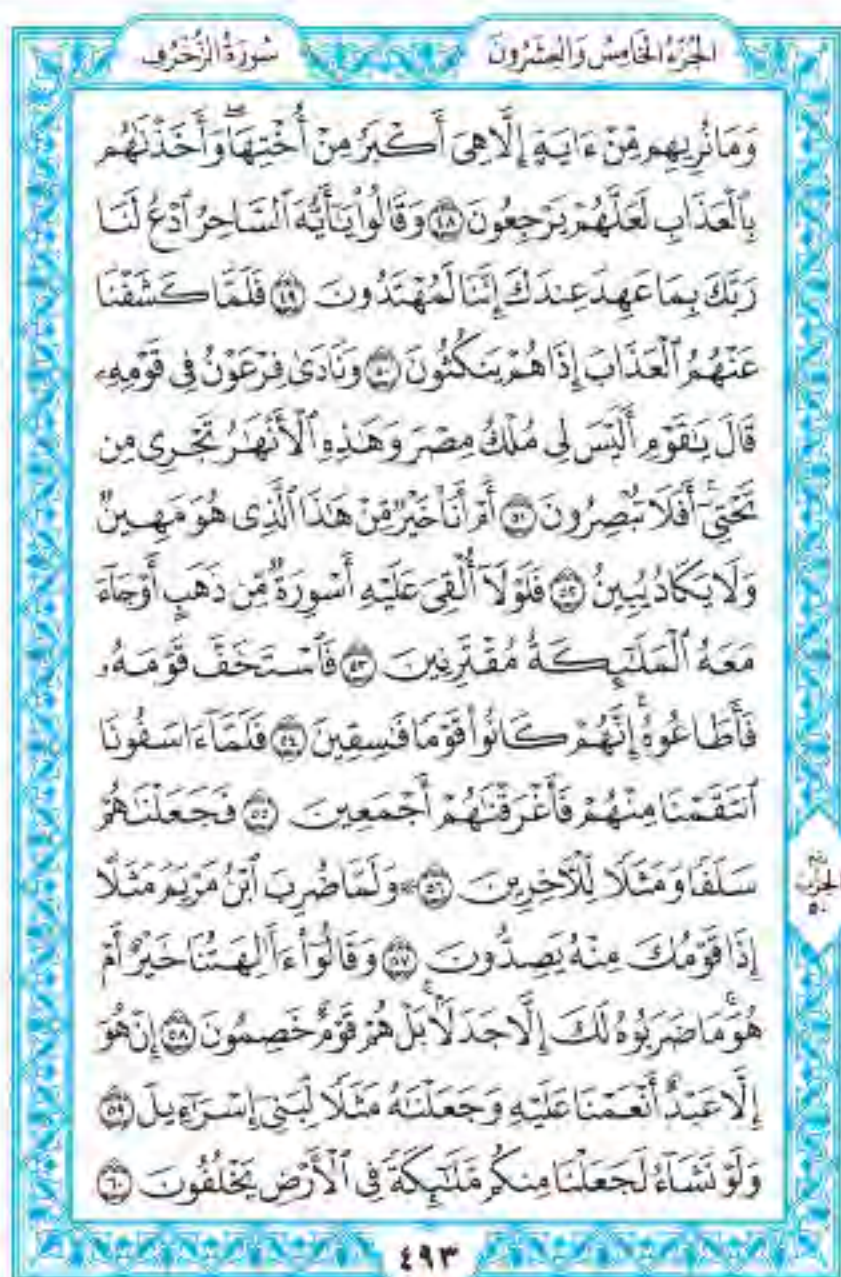 الجُزْءُ الخَامِسُ وَالعِشْرُونَ
سُورَةُ الزُّخْرُفِ
وَمَا نُرِيهِم مِّنْ ءَايَةٍ إِلَّا هِىَ أَكْبَرُ مِنْ أُخْتِهَاۖ وَأَخَذْنَٰهُم
بِٱلْعَذَابِ لَعَلَّهُمْ يَرْجِعُونَ ٤٨ وَقَالُوا۟ يَٰٓأَيُّهَ ٱلسَّاحِرُ ٱدْعُ لَنَا
رَبَّكَ بِمَا عَهِدَ عِندَكَ إِنَّنَا لَمُهْتَدُونَ ٤٩ فَلَمَّا كَشَفْنَا
عَنْهُمُ ٱلْعَذَابَ إِذَا هُمْ يَنكُثُونَ ٥٠ وَنَادَىٰ فِرْعَوْنُ فِى قَوْمِهِۦ
قَالَ يَٰقَوْمِ أَلَيْسَ لِى مُلْكُ مِصْرَ وَهَٰذِهِ ٱلْأَنْهَٰرُ تَجْرِى مِن
تَحْتِىٓۚ أَفَلَا تُبْصِرُونَ ٥١ أَمْ أَنَا۠ خَيْرٌ مِّنْ هَٰذَا ٱلَّذِى هُوَ مَهِينٌ
وَلَا يَكَادُ يُبِينُ ٥٢ فَلَوْلَآ أُلْقِىَ عَلَيْهِ أَسْوِرَةٌ مِّن ذَهَبٍ أَوْ جَآءَ
مَعَهُ ٱلْمَلَٰٓئِكَةُ مُقْتَرِنِينَ ٥٣ فَٱسْتَخَفَّ قَوْمَهُۥ
فَأَطَاعُوهُۚ إِنَّهُمْ كَانُوا۟ قَوْمًا فَٰسِقِينَ ٥٤ فَلَمَّآ ءَاسَفُونَا
ٱنتَقَمْنَا مِنْهُمْ فَأَغْرَقْنَٰهُمْ أَجْمَعِينَ ٥٥ فَجَعَلْنَٰهُمْ
سَلَفًا وَمَثَلًا لِّلْءَاخِرِينَ ٥٦ ۞ وَلَمَّا ضُرِبَ ٱبْنُ مَرْيَمَ مَثَلًا
إِذَا قَوْمُكَ مِنْهُ يَصِدُّونَ ٥٧ وَقَالُوٓا۟ ءَأَٰلِهَتُنَا خَيْرٌ أَمْ
هُوَۚ مَا ضَرَبُوهُ لَكَ إِلَّا جَدَلًۢاۚ بَلْ هُمْ قَوْمٌ خَصِمُونَ ٥٨ إِنْ هُوَ
إِلَّا عَبْدٌ أَنْعَمْنَا عَلَيْهِ وَجَعَلْنَٰهُ مَثَلًا لِّبَنِىٓ إِسْرَٰٓءِيلَ ٥٩
وَلَوْ نَشَآءُ لَجَعَلْنَا مِنكُم مَّلَٰٓئِكَةً فِى ٱلْأَرْضِ يَخْلُفُونَ ٦٠
الحِزْب
٥٠
٤٩٣